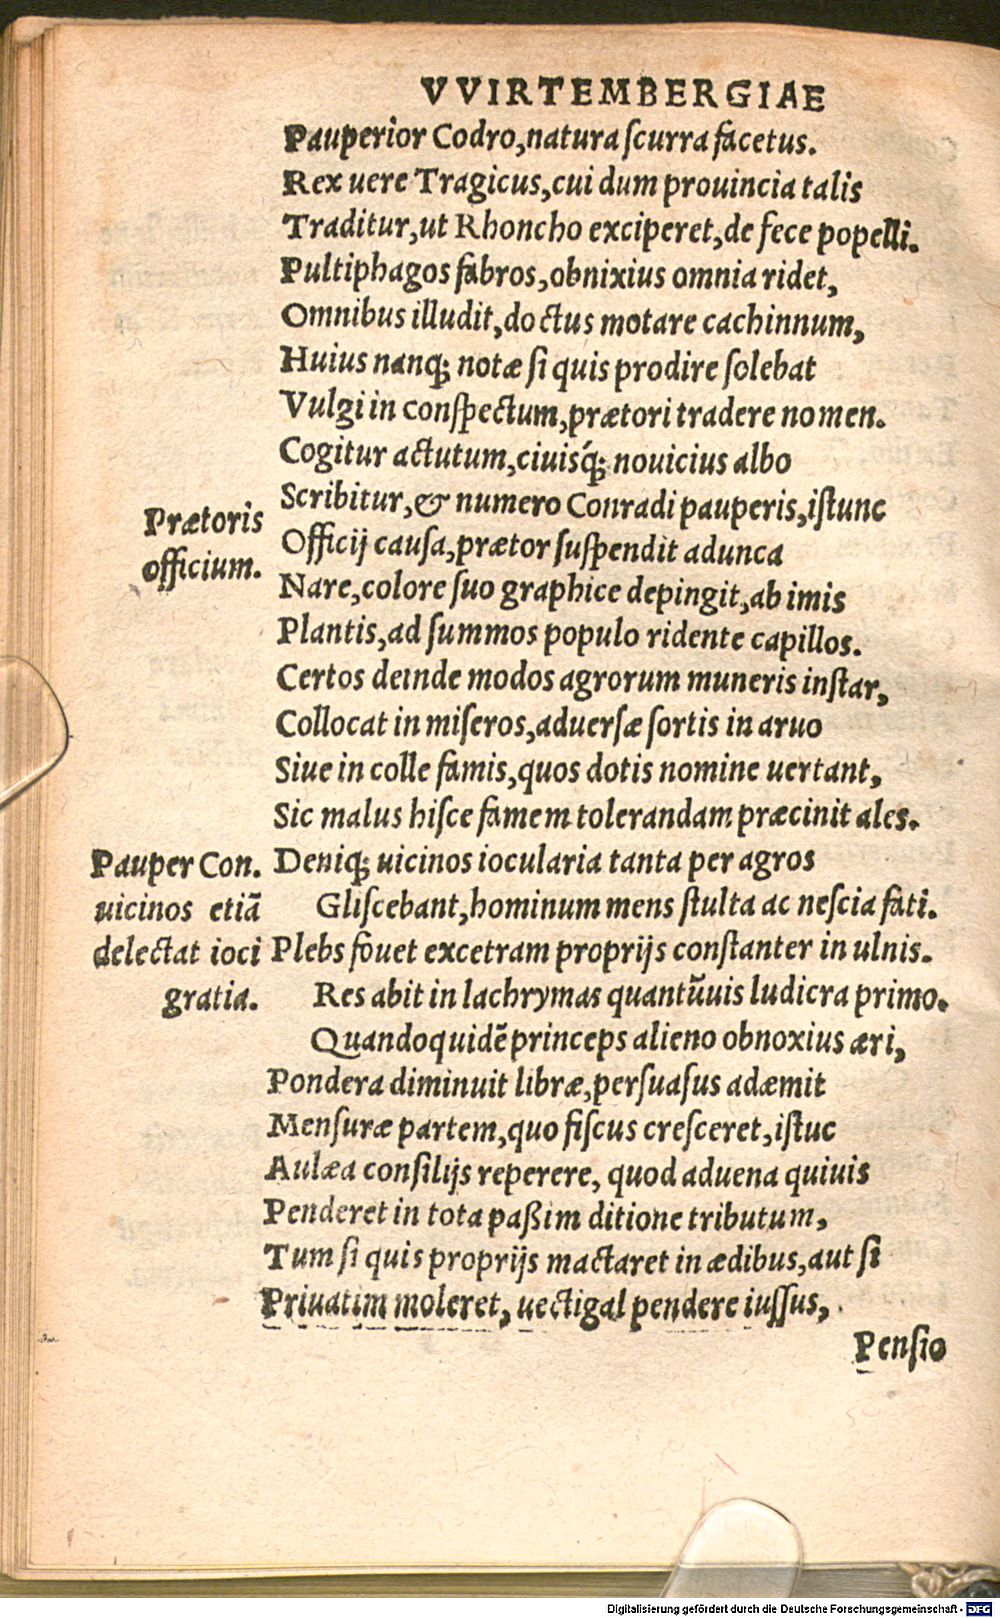 VVIRTEMBERGIAE
Pauperior Codro, natura ſcurra facetus.
Rex uere Tragicus, cui dum prouincia talis
Traditur, ut Rhoncho exciperet, de fece popelli.
Pultiphagos fabros, obnixius omnia ridet,
Omnibus illudit, doctus motare cachinnum,
Huius nanq; notæ ſi quis prodire ſolebat
Vulgi in conſpectum, prætori tradere nomen.
Cogitur actutum, ciuisq́; nouicius albo
Scribitur, & numero Conradi pauperis, iſtunc
Prætoris
officium.
Officij cauſa, prætor ſuſpendit adunca
Nare, colore ſuo graphice depingit, ab imis
Plantis, ad ſummos populo ridente capillos.
Certos deinde modos agrorum muneris inſtar,
Collocat in miſeros, aduerſæ ſortis in aruo
Siue in colle famis, quos dotis nomine uertant,
Sic malus hiſce famem tolerandam præcinit ales.
Pauper Con.
uicinos etiã
delectat ioci
gratia.
Deniq; uicinos iocularia tanta per agros
Gliſcebant, hominum mens ſtulta ac neſcia fati.
Plebs fouet excetram proprijs conſtanter in ulnis.
Res abit in lachrymas quantũuis ludicra primo.
Quandoquidẽ princeps alieno obnoxius æri,
Pondera diminuit libræ, perſuaſus adæmit
Menſuræ partem, quo fiſcus creſceret, iſtuc
Aulæa conſilijs reperere, quod aduena quiuis
Penderet in tota paßim ditione tributum,
Tum ſi quis proprijs mactaret in ædibus, aut ſi
Priuatim moleret, uectigal pendere iuſſus,
Penſio
Digitalisierung gefördert durch die Deutsche Forschungsgemeinschaft - DFG